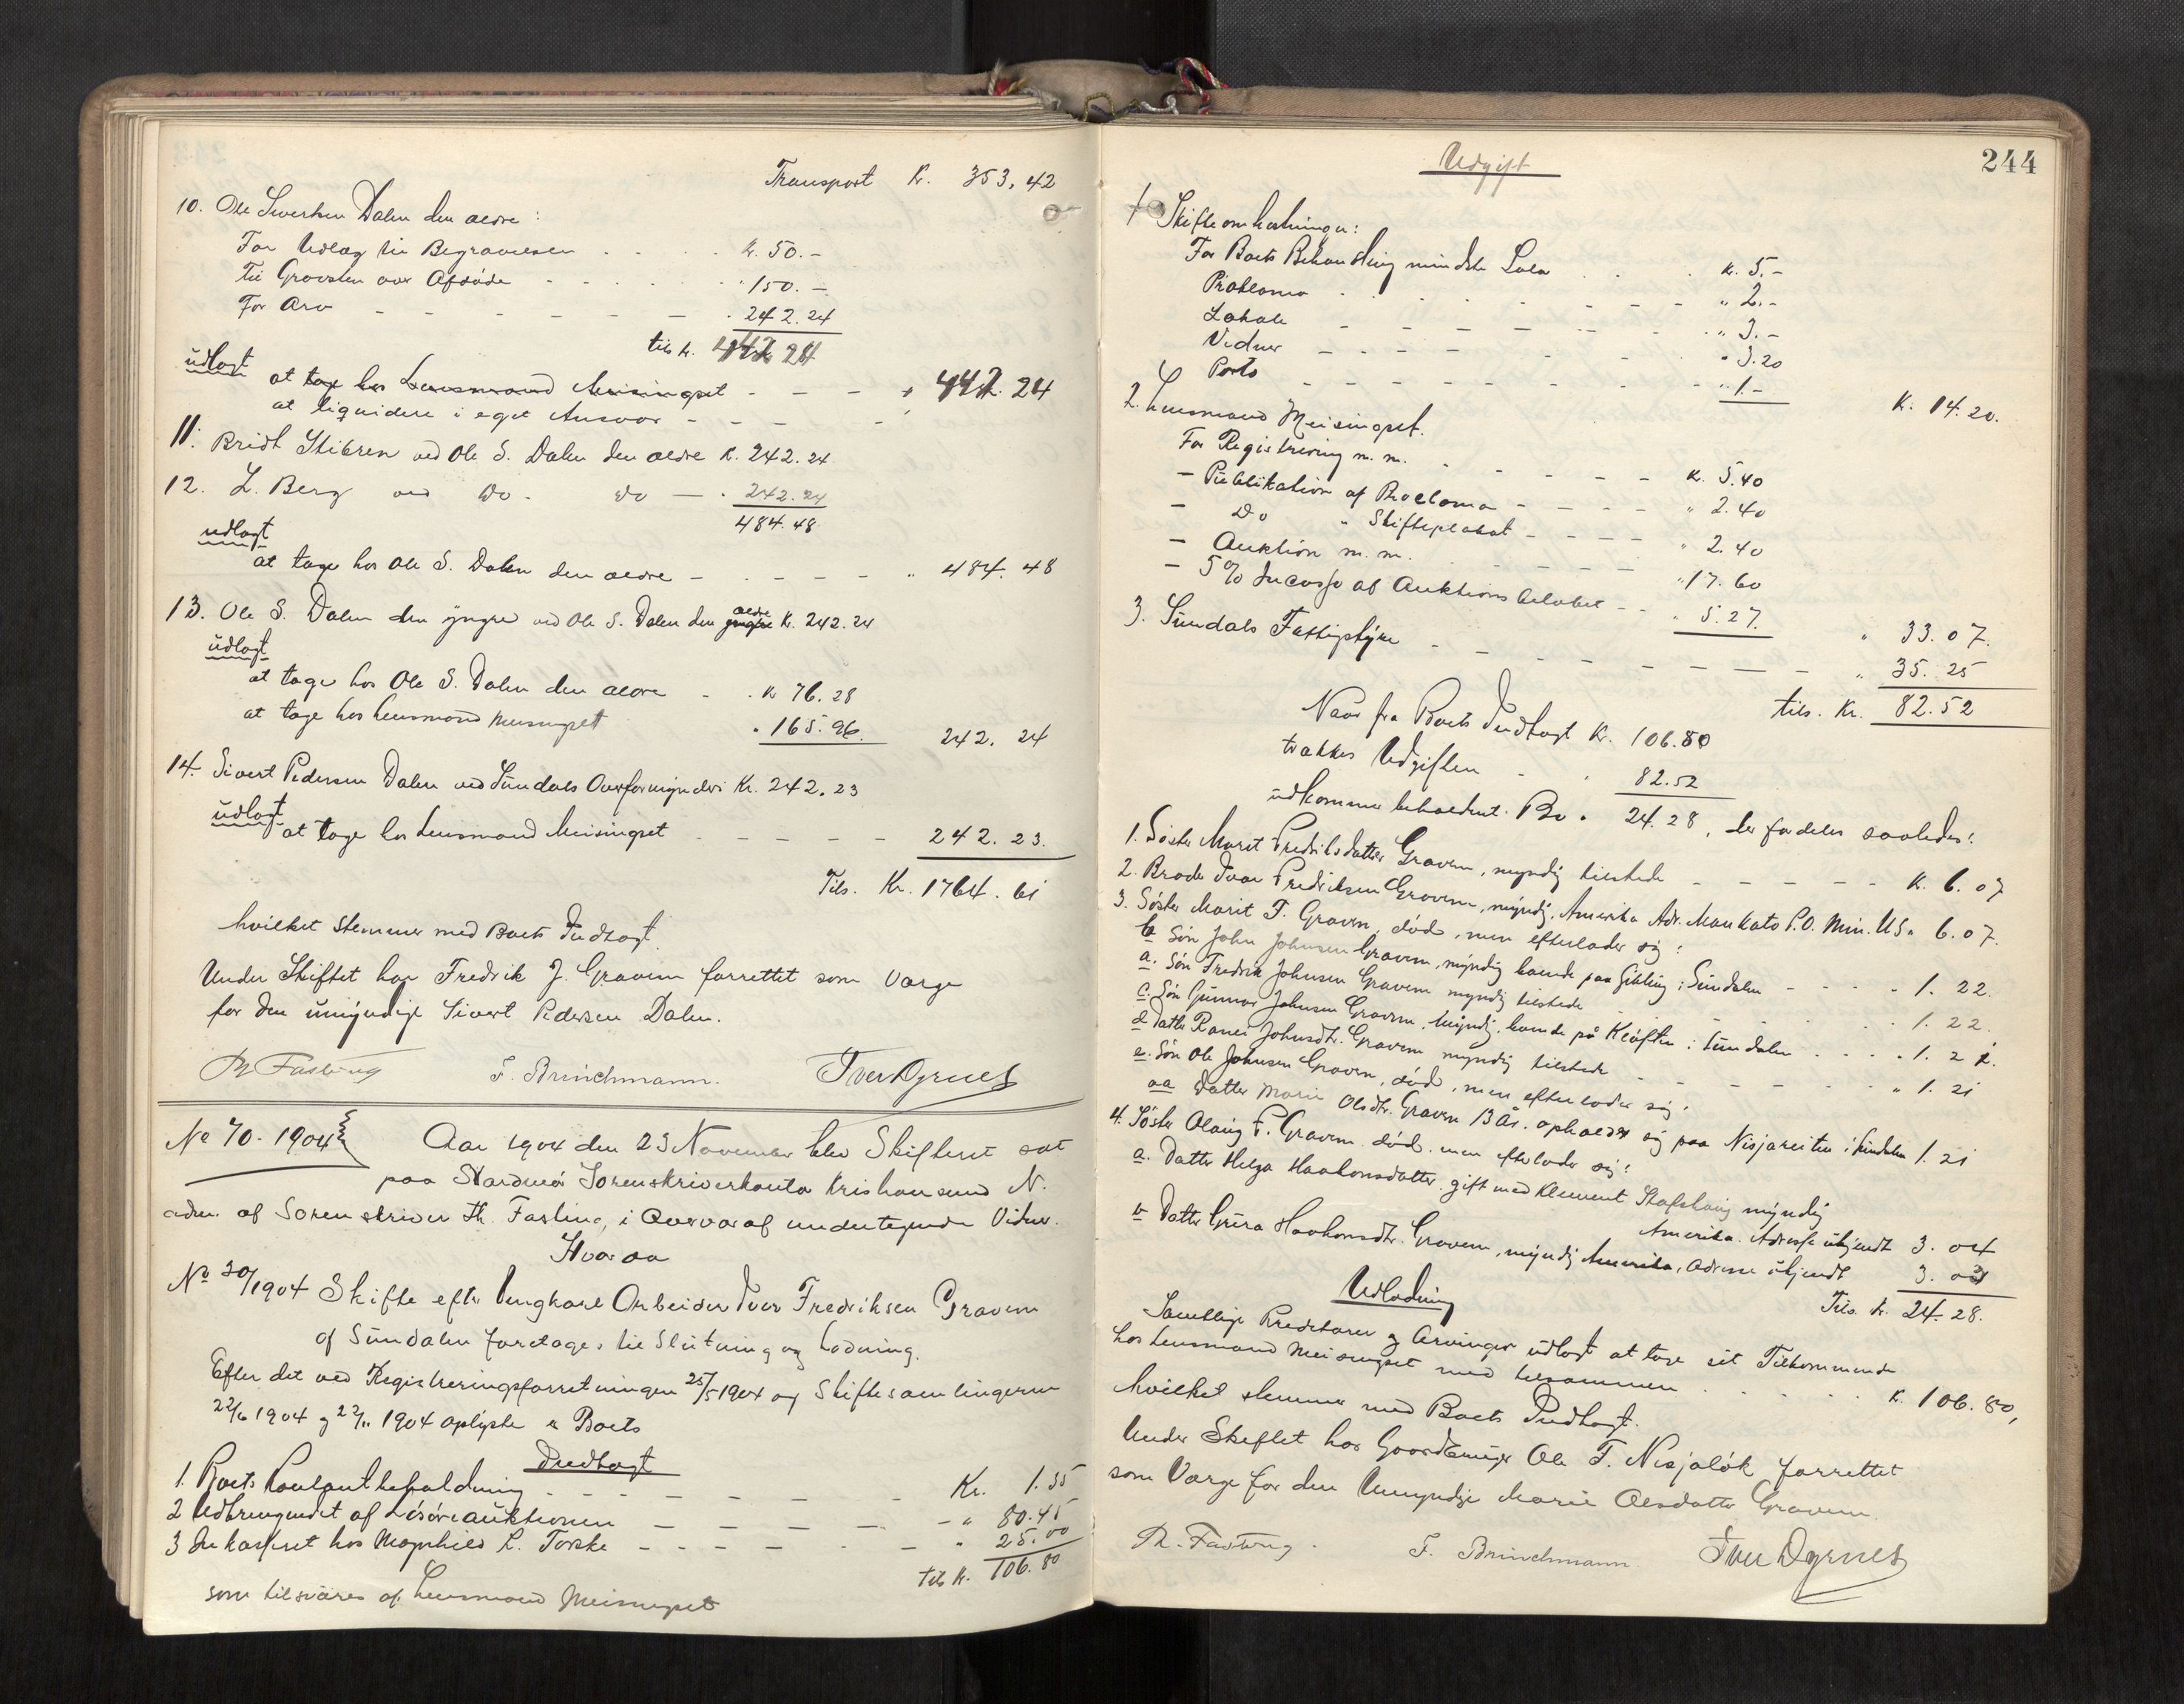 Transport K. 353,42
10. Ole Sivertsen Dalen den ældre:
For Udlæg til Begravelsen K. 50.-
Til Gravsten over Afdøde " 150.-
For Arv " 242.24
tils k. 442 24
udlagt
at tage hos Lensmand Meisingset " 442. 24
at liquidere i eget Ansvar
11. Bridt Stibren ved Ole S. Dalen den ældre K. 242.24
12. L. Berg ved Do. Do " 242.24
484.48
udlagt
at tage hos Ole S. Dalen den ældre " 484.48
13. Ole S. Dalen den yngre ved Ole S. Dalen den yngre ældre K. 242.24
udlagt
at tage hos Ole S. Dalen den ældre K 76.28
at tage hos Lensmand Meisingset " 165.96 242. 24
14. Sivert Pedersen Dalen ved Sundals Overformynderi Kr. 242.23
udlagt
at tage hos Lensmand Meisingset 242. 23.
Tils. Kr. 1764. 61
hvilket stemmer med Boets Indtægt.
Under Skiftet har Fredrik J. Gravem forrettet som Værge
for den umyndige Sivert Pedersen Dalen.
Th Fasting F. Brinchmann. Iver Dyrnes
No 70-1904 Aar 1904 den 23 November blev Skifteret sat
paa Nordmør Sorenskriverkontor Kristiansund N.
adm. af Sorenskriver Th. Fasting, i Overvær af undertegnede Vidner.
Hvorda
No 30/1904 Skifte efter Ungkarl Arbeider Iver Fredriksen Gravem
af Sundalen foretages til Slutning og Lodning.
Efter det ved Registreringsforretningen 25/5 1904 og Skiftesamlingerne
22/6 1904 og 22/11 1904 oplyste er Boets
Indtægt
1. Boets Kontantbeholdning Kr. 1.35
2 Udbringendet af Løsøreauktionen " 80.45
3 Inkasseret hos Magnhild L. Torske " 25.00
tils K. 106.80
som tilsvares af Lensmand Meisingset
244
Udgift
1 Skifteomkostninger:
For Boets Behandling mindste Sats K. 5.-
Proklama " 2.-
Lokale " 3.-
Vidner " 3.20
Porto " 1.- K. 14.20.
2. Lensmand Meisingset.
For Registrering m.m. K. 5.40
- Publikation af Proclama " 2.40
- Do " Skifteplakat " 2.40
- Auktion m.m. " 17.60
- 5% Incasso af Auktionsbeløbet " 5.27. " 33.07.
3. Sundals Fattigstyre " 35.25
tils. Kr. 82.52
Naar fra Boets Indtægt K. 106.80
trækkes Udgiften " 82.52
udkommer beholdent. Bo " 24.28, der fordeles saaledes:
1. Søster Marit Fredriksdatter Gravem, myndig tilstede K. 6.07
2. Broder Ivar Fredriksen Gravem, myndig, Amerika Adr. Mankato P.O. Min. U.S. " 6.07.
3. Søster Marit F. Gravem, død, men efterlader sig:
b Søn John Johnsen Gravem, myndig boende paa Gikling i Sundalen " 1. 22.
a. Søn Fredrik Johnsen Gravem myndig tilstede 1. 22.
c. Søn Gunnar Johnsen Gravem, myndig, boende på Kløften i Sundalen " 1. 21.
d Datter Ranei Johnsdtr. Gravem myndig tilstede " 1. 21
e. Søn Ole Johnsen Gravem, død, men efterlader sig:
aa Datter Marie Olsdtr. Gravem 13 År. opholder sig paa Nisjareiten i Sundalen 1. 21
4. Søster Olaug F. Gravem død, men efterlader sig:
a. Datter Helga Haakonsdatter gift med Klement myndig
Amerika. Adresse ubjendt 3. 04
b Datter Gura Haakonsdtr. Gravem, myndig Amerika, Adresse ubjendt 3. 03
Tils. K. 24.28.
Udlodning
Samtlige Kreditorer og Arvinger udlagt at tage sit Tilkommende
hos Lensmand Meisingset med tilsammen K. 106.80,
hvilket stemmer med Boets Indtægt.
Under Skiftet har Gaardbruger Ole F. Nisjaløk forrettet
som Værge for den Umyndige Marie Olsdatter Gravem.
Th. Fasting. F. Brinchmann. Iver Dyrnes